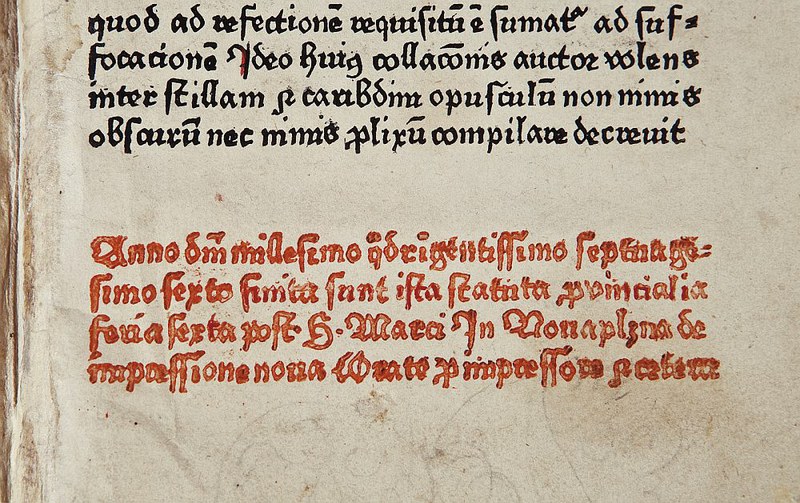 quod ad refectionē requisitū ē sumatᷣ ad suf⸗
focacionē Ideo huiꝰ collacōnis auctor volens
inter scillam ⁊ caribdim opusculū non nimis
obscurū nec nimis ꝓlixū compilare decreuit
Anno dn̄i millesimo q̄dringentissimo septuage⸗
simo sexto finita sunt ista statuta ꝓvincialia
feria sexta post S. Marci In Nouaplzna de
impressione noua Orate ꝓ impressore ⁊ cetera